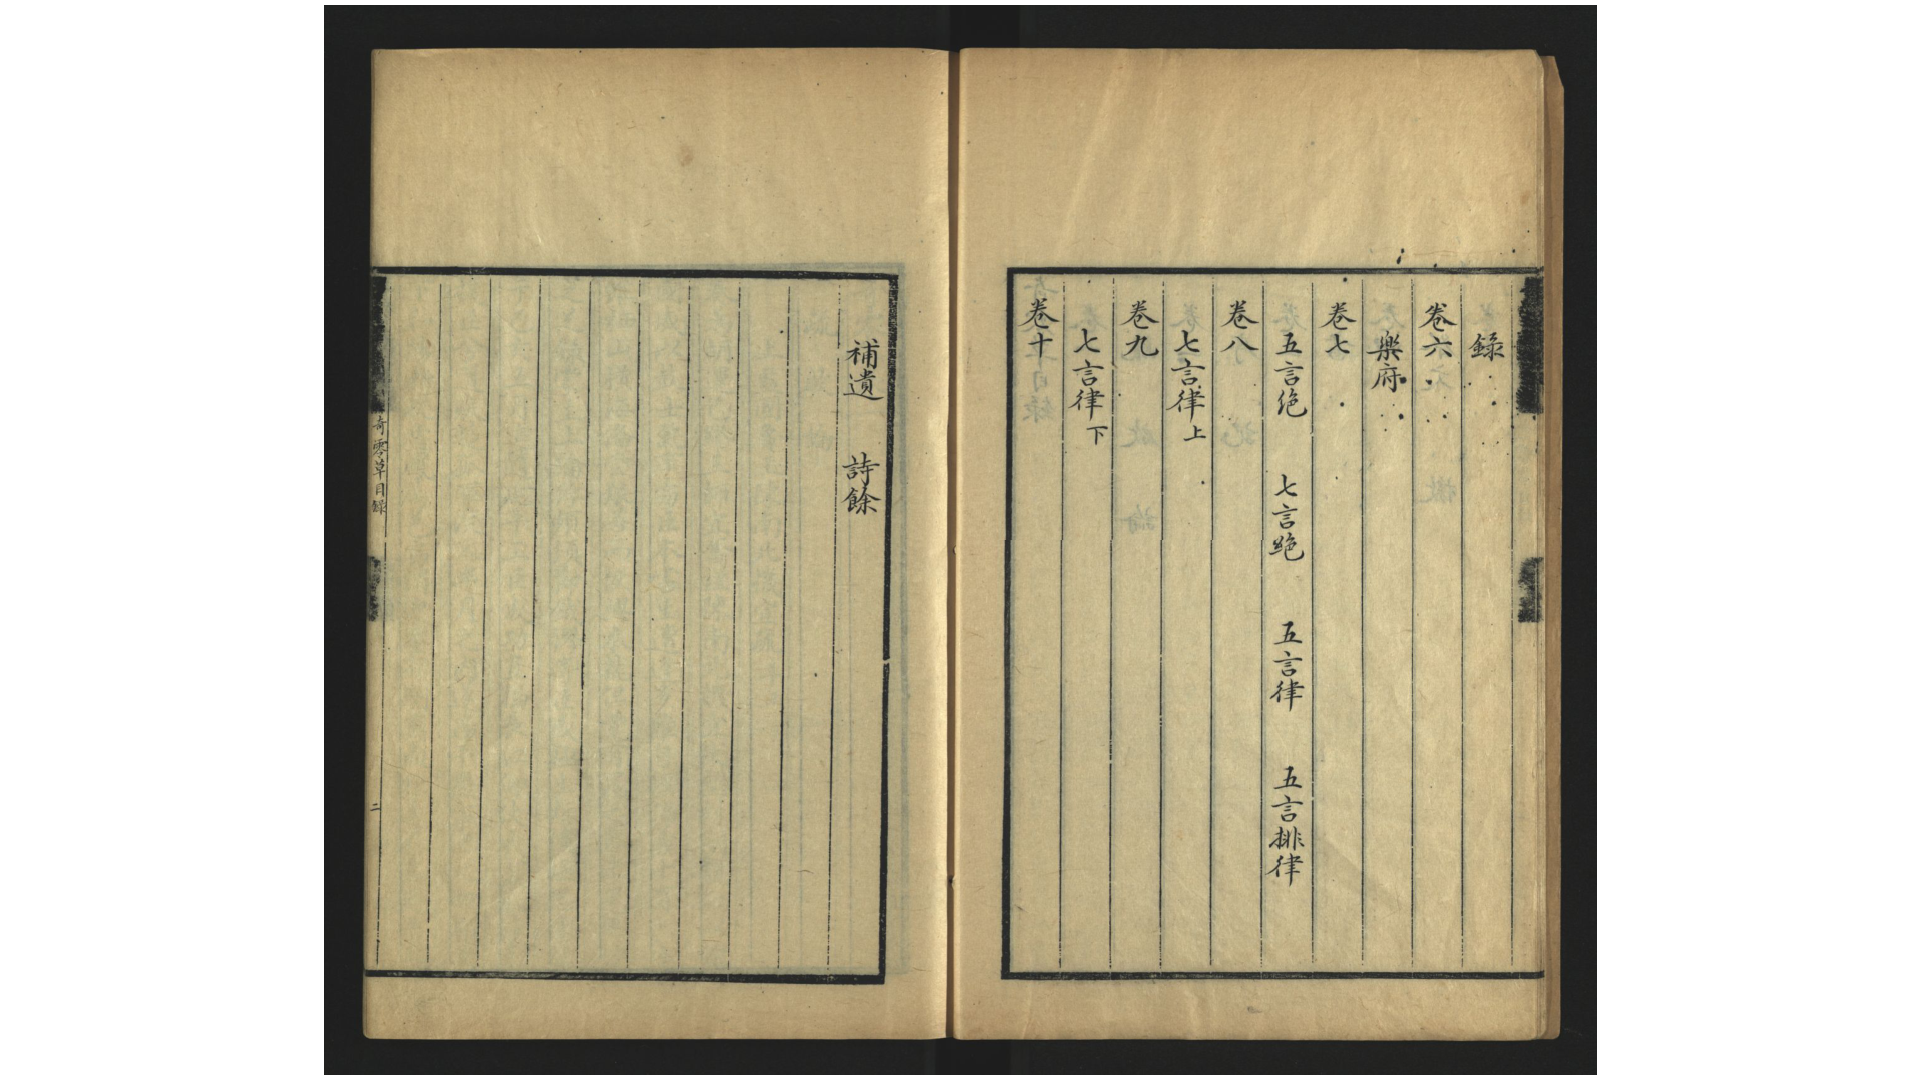 録
卷六
樂府
卷七
五言绝 七言絶 五言律 五言排律
卷八
七言律上
卷九
七言律下
卷十
補遺 詩餘
奇零草目録
二